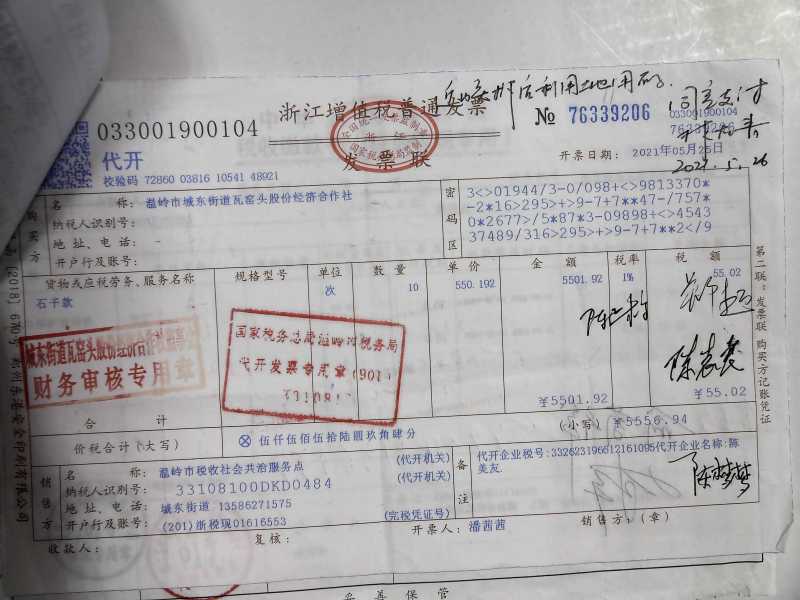 浙江增值税普通发票
发票联
033001900104
代开
校验码 72860 03816 10541 48921
№ 76339206
033001900104
76339206
开票日期: 2021年05月25日
同意支付
2021.5.26
购买方
名称: 温岭市城东街道瓦窑头股份经济合作社
纳税人识别号:
地址、电话:
开户行及账号:
密码区
3<>01944/3-0/098+<>9813370*
-2*16>295>+>9-7+7**47-/757*
0*2677>/5*87*3-09898+<>4543
37489/316>295>+>9-7+7**2</9
货物或应税劳务、服务名称 规格型号 单位 数量 单价 金额 税率 税额
石子款 次 10 550.192 5501.92 1% 55.02
城东街道瓦窑头股份经济合作社
财务审核专用章
国家税务总局温岭市税务局
代开发票专用章(901)
¥5501.92 ¥55.02
合计
价税合计(大写) ⊗ 伍仟伍佰伍拾陆圆玖角肆分 (小写) ¥5556.94
销售方
名称: 温岭市税收社会共治服务点 (代开机关)
纳税人识别号: 33108100DKD0484 (代开机关)
地址、电话: 城东街道 13586271575
开户行及账号: (201)浙税现01616553 (完税凭证号)
备注
代开企业税号:332623196612161095代开企业名称:陈
美友.
收款人: 复核: 开票人: 潘茜茜 销售方:(章)
第二联:发票联 购买方记账凭证
妥善保管